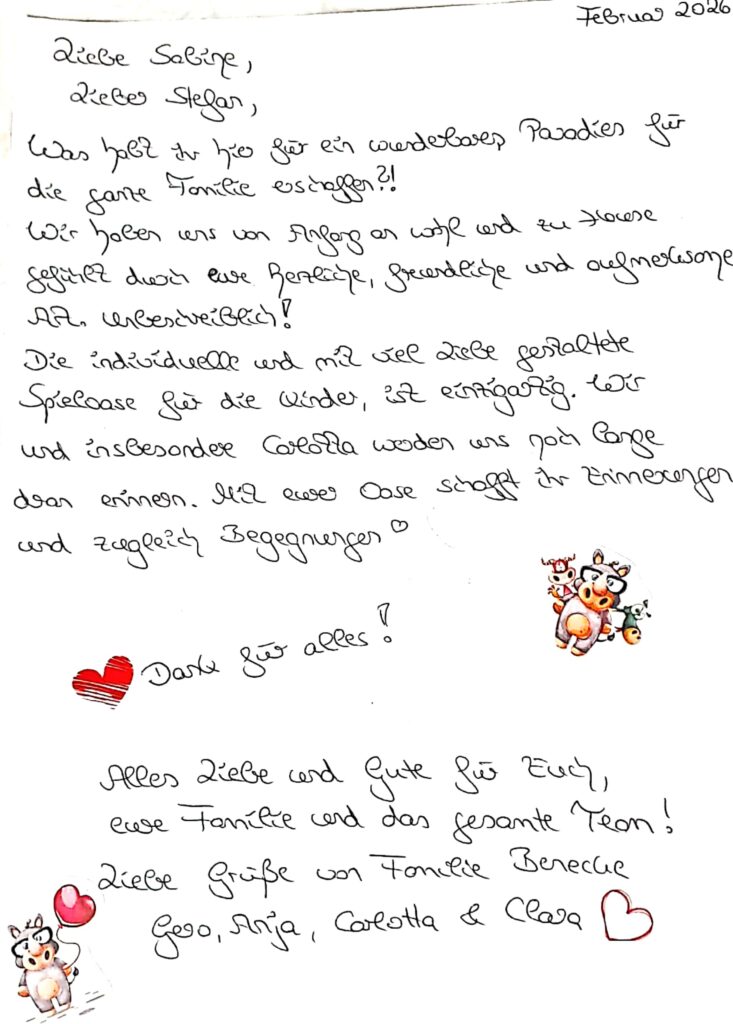 Februar 2026
Liebe Sabine,
Lieber Stefan,
Was habt ihr hier für ein wunderbares Paradies für
die ganze Familie erschaffen?!
Wir haben uns von Anfang an wohl und zu Hause
gefühlt durch eure herzliche, freundliche und aufmerksame
Art. Unbeschreiblich!
Die individuelle und mit viel Liebe gestaltete
Spieloase für die Kinder, ist einzigartig. Wir
und insbesondere Carlotta werden uns noch lange
dran erinnern. Mit eurer Oase schafft ihr Erinnerungen
und zugleich Begegnungen ♡
Danke für alles!
Alles Liebe und Gute für Euch,
eure Familie und das gesamte Team!
Liebe Grüße von Familie Benecke
Gero, Anja, Carlotta & Clara